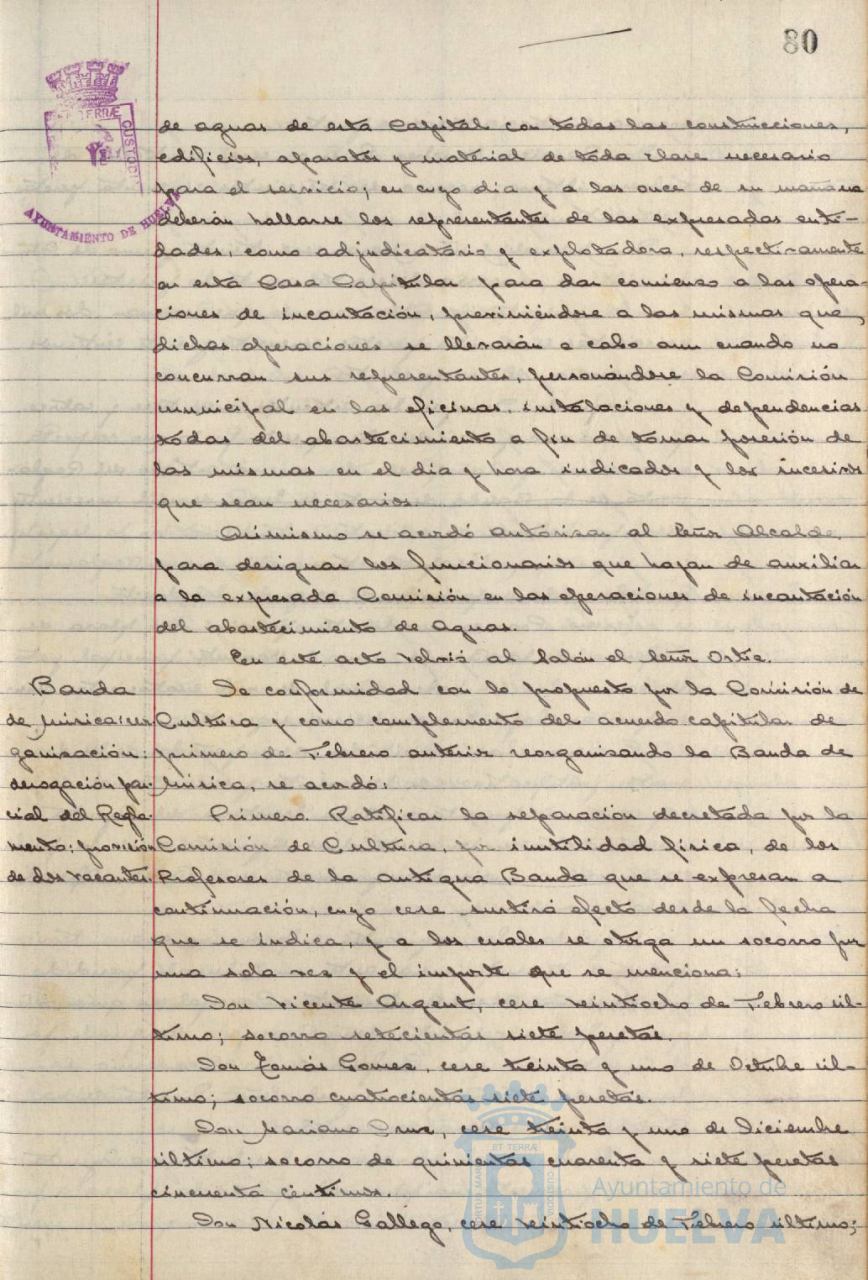 80
de aguas de esta Capital con todas las construcciones,
edificios, aparatos y material de toda clase necesario
para el servicio, en cuyo dia y a las once de su mañana
deberán hallarse los representantes de las expresadas enti-
dades, como adjudicatario y explotadora, respectivamente
en esta Casa Capitular para dar comienzo a las opera-
ciones de incautación, previniéndose a las mismas que,
dichas operaciones se llevarán a cabo aun cuando no
concurran sus representantes, personándose la Comisión
municipal en las oficinas, instalaciones y dependencias
todas del abastecimiento a fin de tomar posesión de
las mismas en el dia y hora indicados y los sucesivos
que sean necesarios.
Asimismo se acordó autorizar al Señor Alcalde,
para designar los funcionarios que hayan de auxiliar
a la expresada Comisión en las operaciones de incautación
del abastecimiento de Aguas.
En este acto volvió al Salón el Señor Ortiz.
Banda
de Música: reor
ganización:
derogación par-
cial del Regla-
mento; provisión
de dos vacantes.
De conformidad con lo propuesto por la Comisión de
Cultura y como complemento del acuerdo capitular de
primero de Febrero anterior reorganizando la Banda de
Música, se acordó:
Primero. Ratificar la separación decretada por la
Comisión de Cultura, por inutilidad física, de los
Profesores de la antigua Banda que se expresan a
continuación, cuyo cese surtirá efecto desde la fecha
que se indica, y a los cuales se otorga un socorro por
una sola vez y el importe que se menciona:
Don Vicente Argent, cese veintiocho de Febrero úl-
timo; socorro setecientas siete pesetas.
Don Tomás Gomez, cese treinta y uno de Octubre úl-
timo; socorro cuatrocientas siete pesetas.
Don Mariano Cruz, cese treinta y uno de Diciembre
último; socorro de quinientas cuarenta y siete pesetas
cincuenta céntimos.
Don Nicolás Gallego, cese veintiocho de Febrero último;
TERRÆ
CUSTODI
AYUNTAMIENTO DE HUELVA
ET TERRÆ
Ayuntamiento de
HUELVA